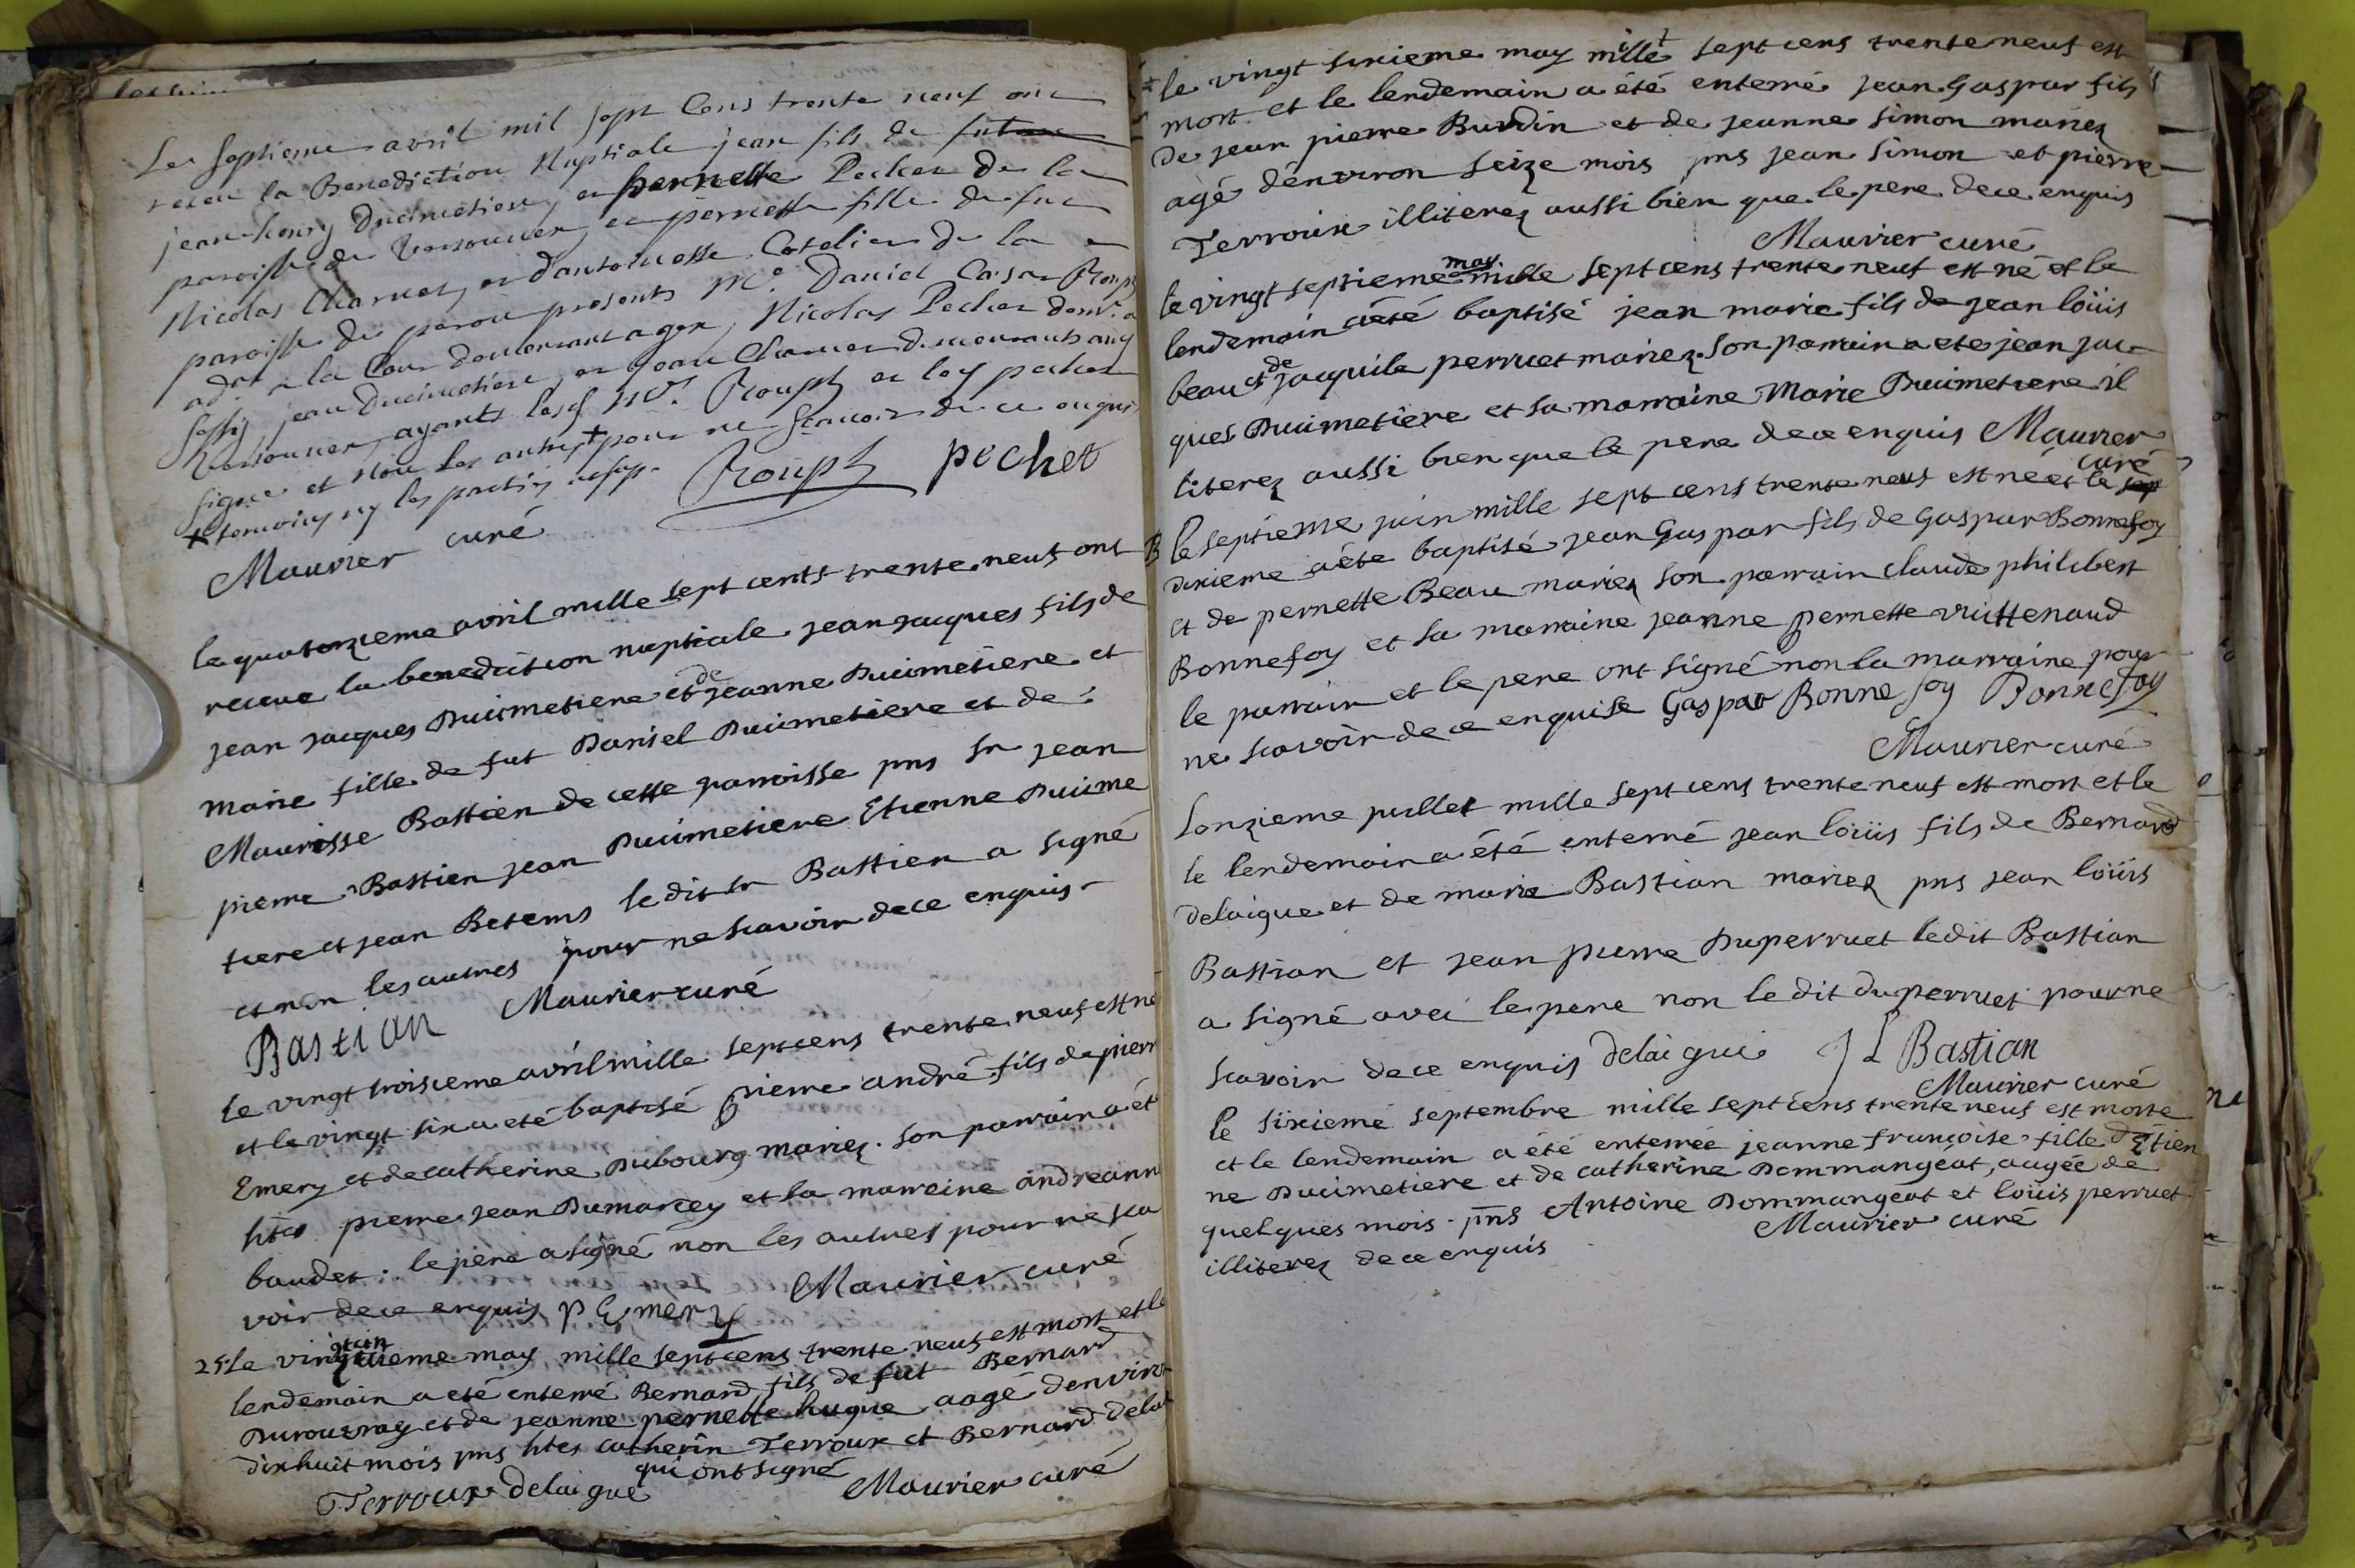 Le septieme avril mil sept Cens trente neuf ont
receu la Benediction Nuptiale jean fils de fut
jean-henry Ducimetiere, et pernette Pechet de la
paroisse de Versonnex, et pernette fille de fut
Nicolas Charvet, et d'antoinette Cotelier de la
paroisse de peron presents Mr. Daniel Cesar Rouph
adt. a la Cour demeurant a gex, Nicolas Pechet demt. a
Jean Ducimetiere, et jean Charvet demeurants audt
Versonnex, ayants lesd Mr. Rouph et led pechet
signé et non les autres + pour ne scavoir de ce enquis
+ temoins ny les parties
Rouph pechet
Maurier curé
le quatorzieme avril mille sept cents trente neuf ont
receue la benediction nuptiale jean jacques fils de
jean jacques Ducimetiere et de jeanne Ducimetiere et
marie fille de fut Daniel Ducimetiere et de
Maurisse Bastien de cette parroisse pns Sr jean
pierre Bastien jean Ducimetiere Etienne Ducime
tiere et jean Betems le dit Sr Bastien a signé
et non les autres pour ne scavoir de ce enquis
Bastian Maurier curé
le vingt troisieme avril mille sept cens trente neuf est né
et le vingt six a eté baptisé pierre andré fils de pierr
Emery et de catherine Dubourg mariez. son parrain a ét
htes pierre jean Dumarcey et la marreine andreann
baudet. le pere a signé non les autres pour ne sca
voir de ce enquis P Emery Maurier curé
25. Le vingt cin quieme may mille sept cens trente neuf est mort et le
lendemain a eté enterré Bernard fils de fut Bernard
Durouzray et de jeanne pernette hugue aagé denviro
dixhuit mois pns htes catherin Terroux et Bernard delai
qui ont signé
Terroux delaigue Maurier curé
le vingt sixieme may mille sept cens trente neuf est
mort et le lendemain a été enterré jean Gaspar fils
de jean pierre Burdin et de jeanne simon mariez
agé d'environ seize mois pns jean simon et pierre
Terroux illiterez aussi bien que le pere de ce enquis
Maurier curé
le vingt septieme may mille sept cens trente neuf est né et le
lendemain a été baptisé jean marie fils de jean loüis
beau et de jaquile perruet mariez. son parrain a ete jean jac
ques Ducimetiere et sa marraine Marie Ducimetiere il
literez aussi bien que le pere de ce enquis Maurier
curé
le septieme juin mille sept cens trente neuf est né et le
dixieme a éte baptisé jean Gaspar fils de Gaspar Bonnefoy
et de pernette Beau mariez son parrain claude philibert
Bonnefoy et sa marraine jeanne pernette vuittenaud
le parrain et le pere ont signé non la marraine pour
ne scavoir de ce enquise Gaspar Bonne foy Bonnefoy
Maurier curé
Lonzieme juillet mille sept cens trente neuf est mort et le
le lendemain a été enterré jean loüis fils de Bernard
delaigue et de marie Bastian mariez pns jean loüis
Bastian et jean pierre Duperruet le dit Bastian
a signé avec le pere non le dit duperruet pour ne
scavoir de ce enquis delaigue J L Bastian
Maurier curé
le sixieme septembre mille sept cens trente neuf est morte
et le lendemain a été enterrée jeanne françoise fille d'Etien
ne Ducimetiere et de catherine Dommangeat, aagée de
quelques mois. pns Antoine Dommangeat et loüis perruet
illiterez de ce enquis Maurier curé